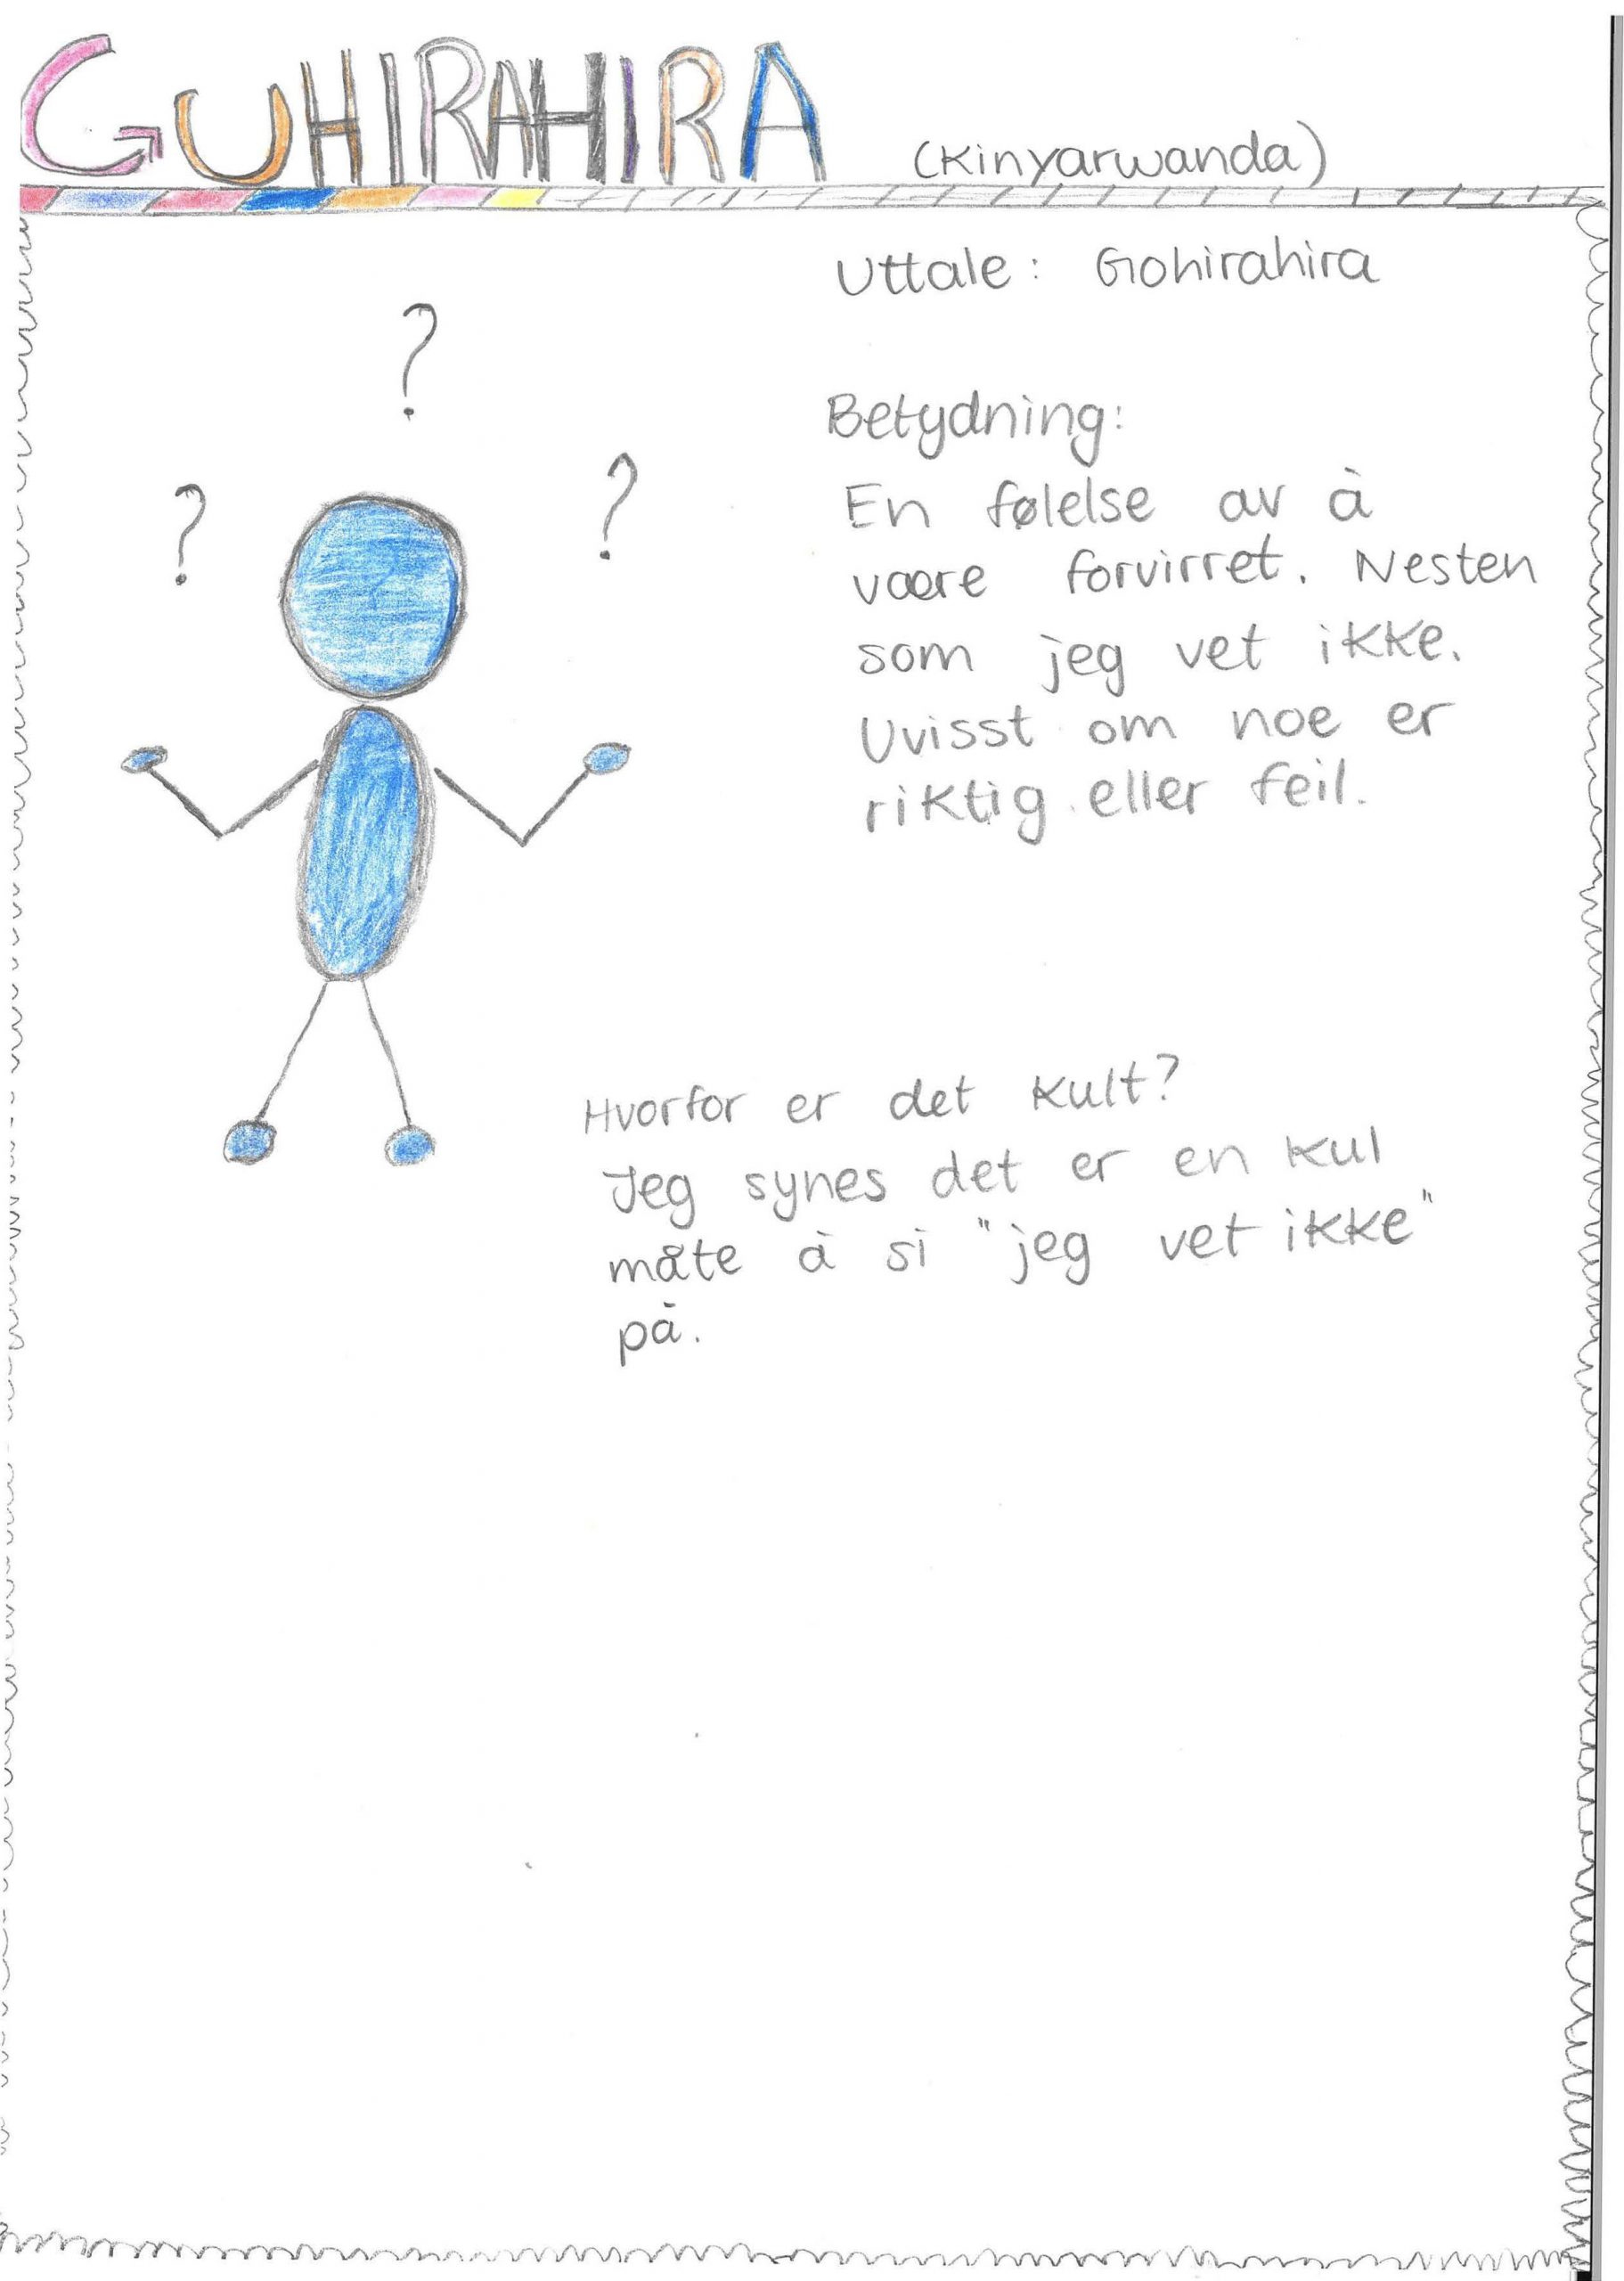 GUHIRAHIRA (Kinyarwanda)
Uttale: Gohirahira
?
?
?
Betydning:
En følelse av å
være forvirret. Nesten
som jeg vet ikke.
Uvisst om noe er
riktig eller feil.
Hvorfor er det kult?
Jeg synes det er en kul
måte å si "jeg vet ikke"
på.